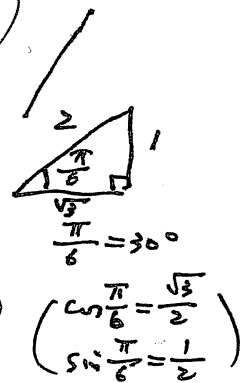 2
1
π/6
√3
π/6 = 30°
cos π/6 = √3/2
sin π/6 = 1/2